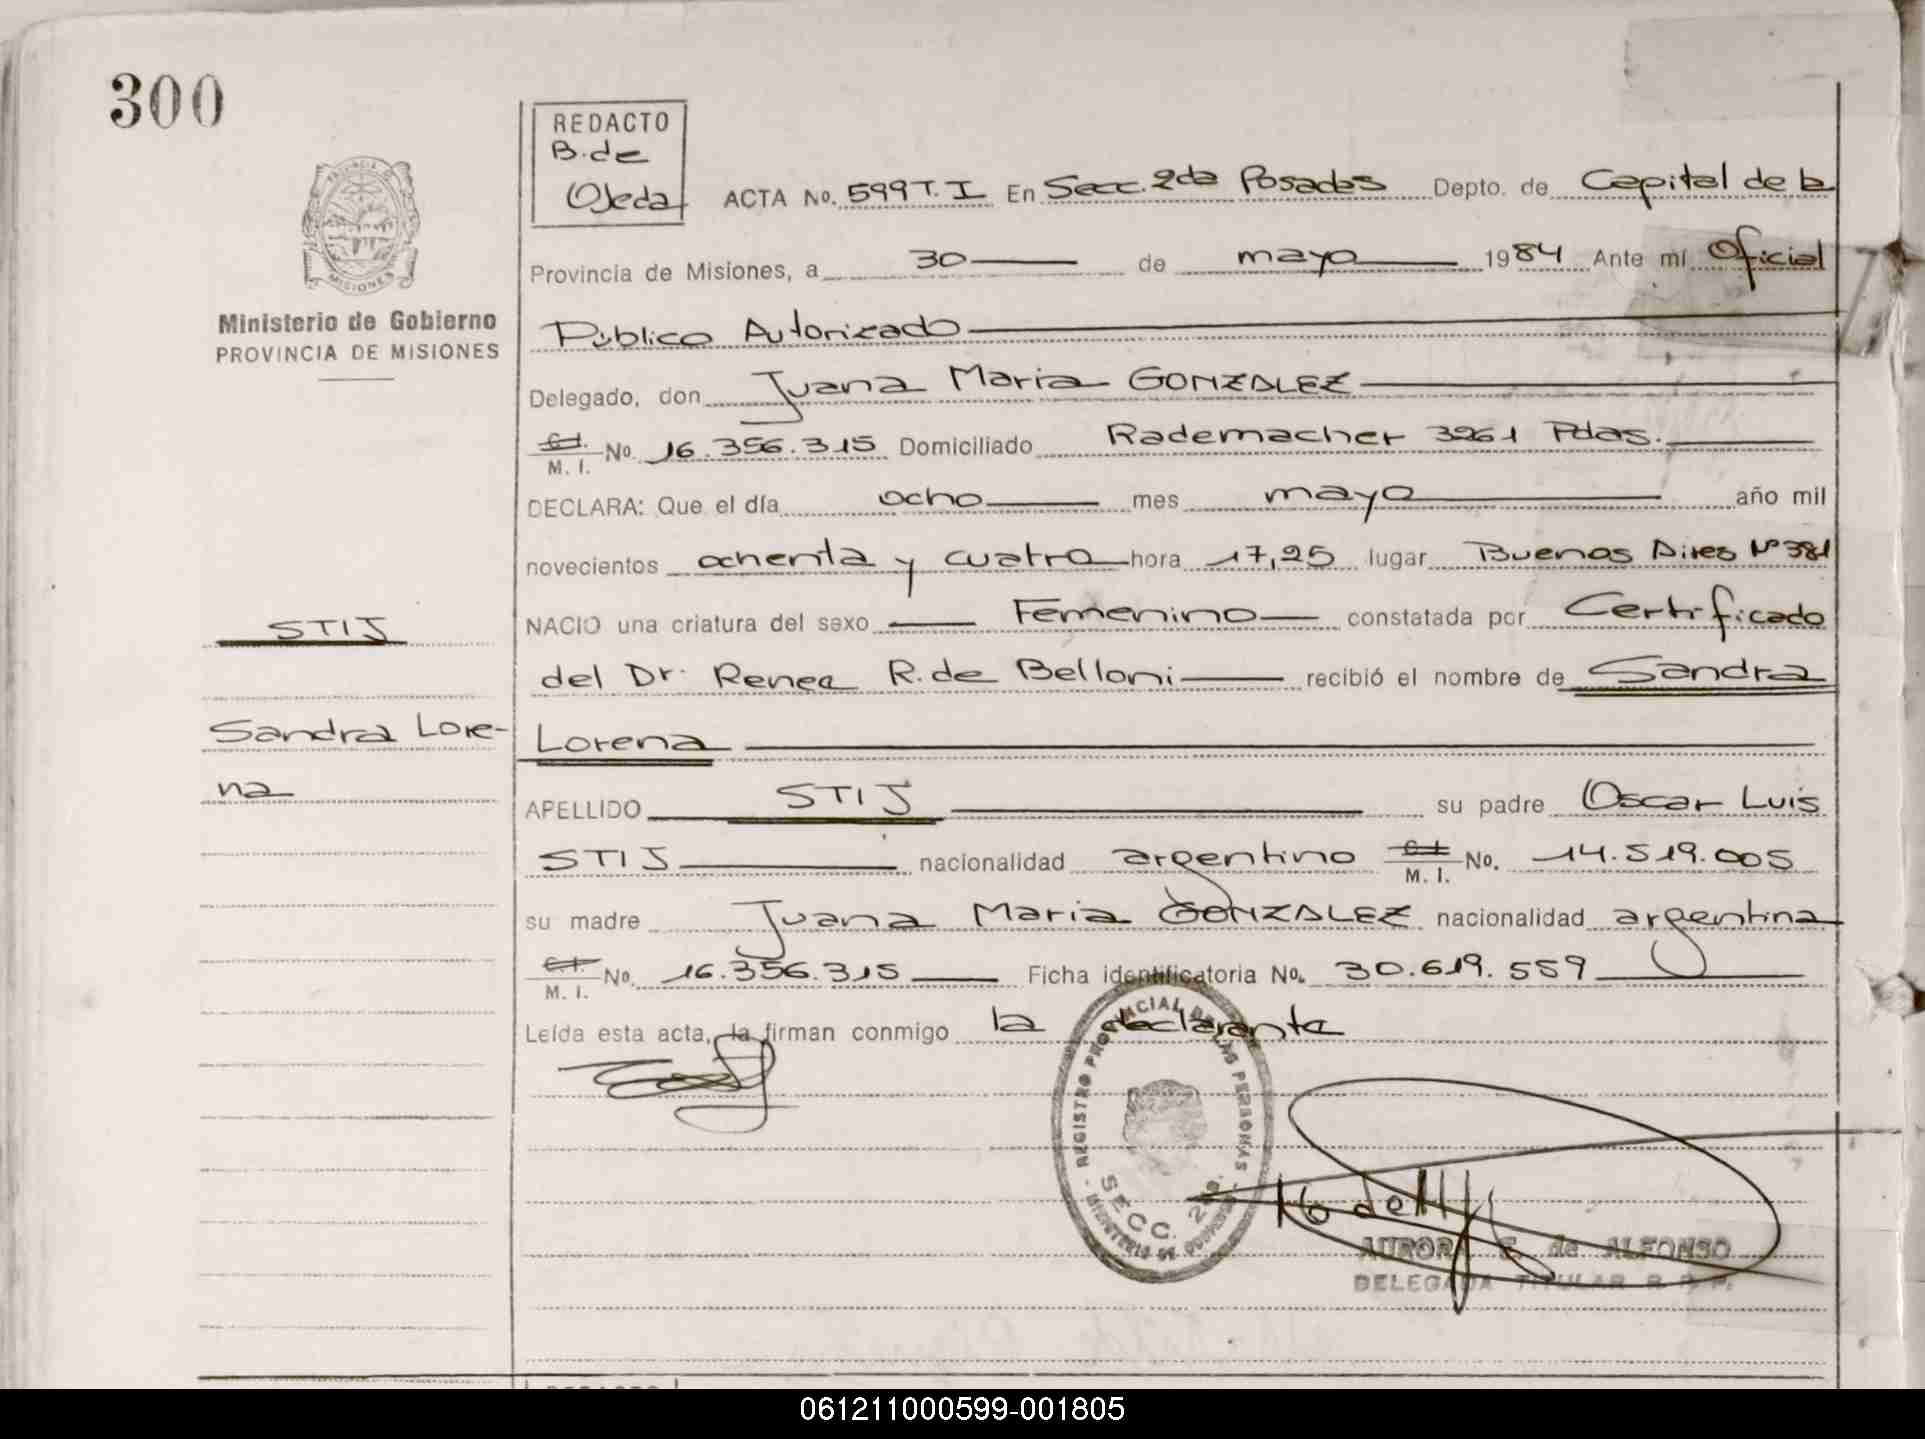 300
REDACTO
B. de
Ojeda
ACTA No. 599 T. I En Secc. 2da Posadas Depto. de Capital de la
Provincia de Misiones, a 30 de mayo 1984 Ante mí Oficial
Público Autorizado
Delegado, don Juana Maria GONZALEZ
C.I.
M. I. No. 16.356.315 Domiciliado Rademacher 3261 Pdas.
DECLARA: Que el día ocho mes mayo año mil
novecientos ochenta y cuatro hora 17,25 lugar Buenos Aires Nº 381
NACIO una criatura del sexo Femenino constatada por Certificado
del Dr. Renee R. de Belloni recibió el nombre de Sandra
Lorena
APELLIDO STIJ su padre Oscar Luis
STIJ nacionalidad argentino C.I.
M. I. No. 14.519.005
su madre Juana Maria GONZALEZ nacionalidad argentina
C.I.
M. I. No. 16.356.315 Ficha identificatoria No. 30.619.559
Leída esta acta, la firman conmigo la declarante
PROVINCIA DE
MISIONES
Ministerio de Gobierno
PROVINCIA DE MISIONES
STIJ
Sandra Lore-
na
REGISTRO PROVINCIAL DE LAS PERSONAS
SECC. 2da.
MINISTERIO DE GOBIERNO
AURORA E. de ALFONSO
DELEGADA TITULAR R. P. P.
061211000599-001805